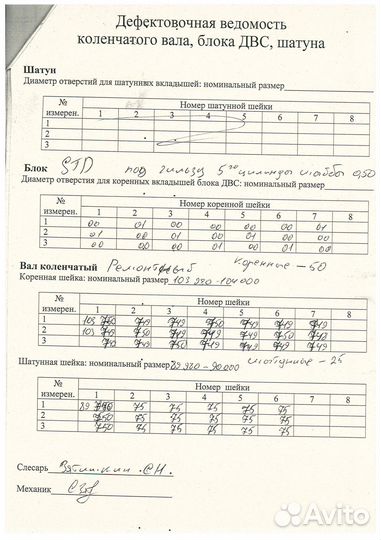 Дефектовочная ведомость
коленчатого вала, блока ДВС, шатуна
Шатун
Диаметр отверстий для шатунных вкладышей: номинальный размер
№ измерен. Номер шатунной шейки
1 2 3 4 5 6 7 8
1
2
3
Блок STD под гильзу 5го цилиндра шайбы 0,50
Диаметр отверстия для коренных вкладышей блока ДВС: номинальный размер
№ измерен. Номер коренной шейки
1 2 3 4 5 6 7 8
1 00 01 00 00 00 00 01
2 01 00 01 00 01 00 00
3 00 00 00 00 00 01 00
Вал коленчатый Ремонтный Коренные - 50
Коренная шейка: номинальный размер 103 980 - 104 000
№ измерен. Номер шейки
1 2 3 4 5 6 7 8
1 103 750 749 749 750 749 749 749
2 103 750 749 749 749 750 749
3 749 750 749 749 749 749
Шатунная шейка: номинальный размер 89 980 - 90 000 шатунные - 25
№ измерен. Номер шейки
1 2 3 4 5 6 7 8
1 89 75 75 75 75 75
2 750 75 75 75 75 75
3 750 75 75 75 75 75
Слесарь С.Н.
Механик
Avito